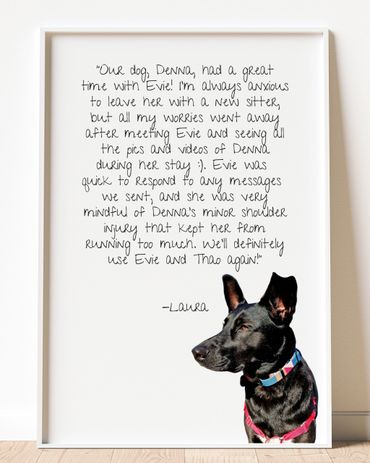 "Our dog, Denna, had a great
time with Evie! I'm always anxious
to leave her with a new sitter,
but all my worries went away
after meeting Evie and seeing all
the pics and videos of Denna
during her stay :). Evie was
quick to respond to any messages
we sent, and she was very
mindful of Denna's minor shoulder
injury that kept her from
running too much. We'll definitely
use Evie and Thao again!"
-Laura